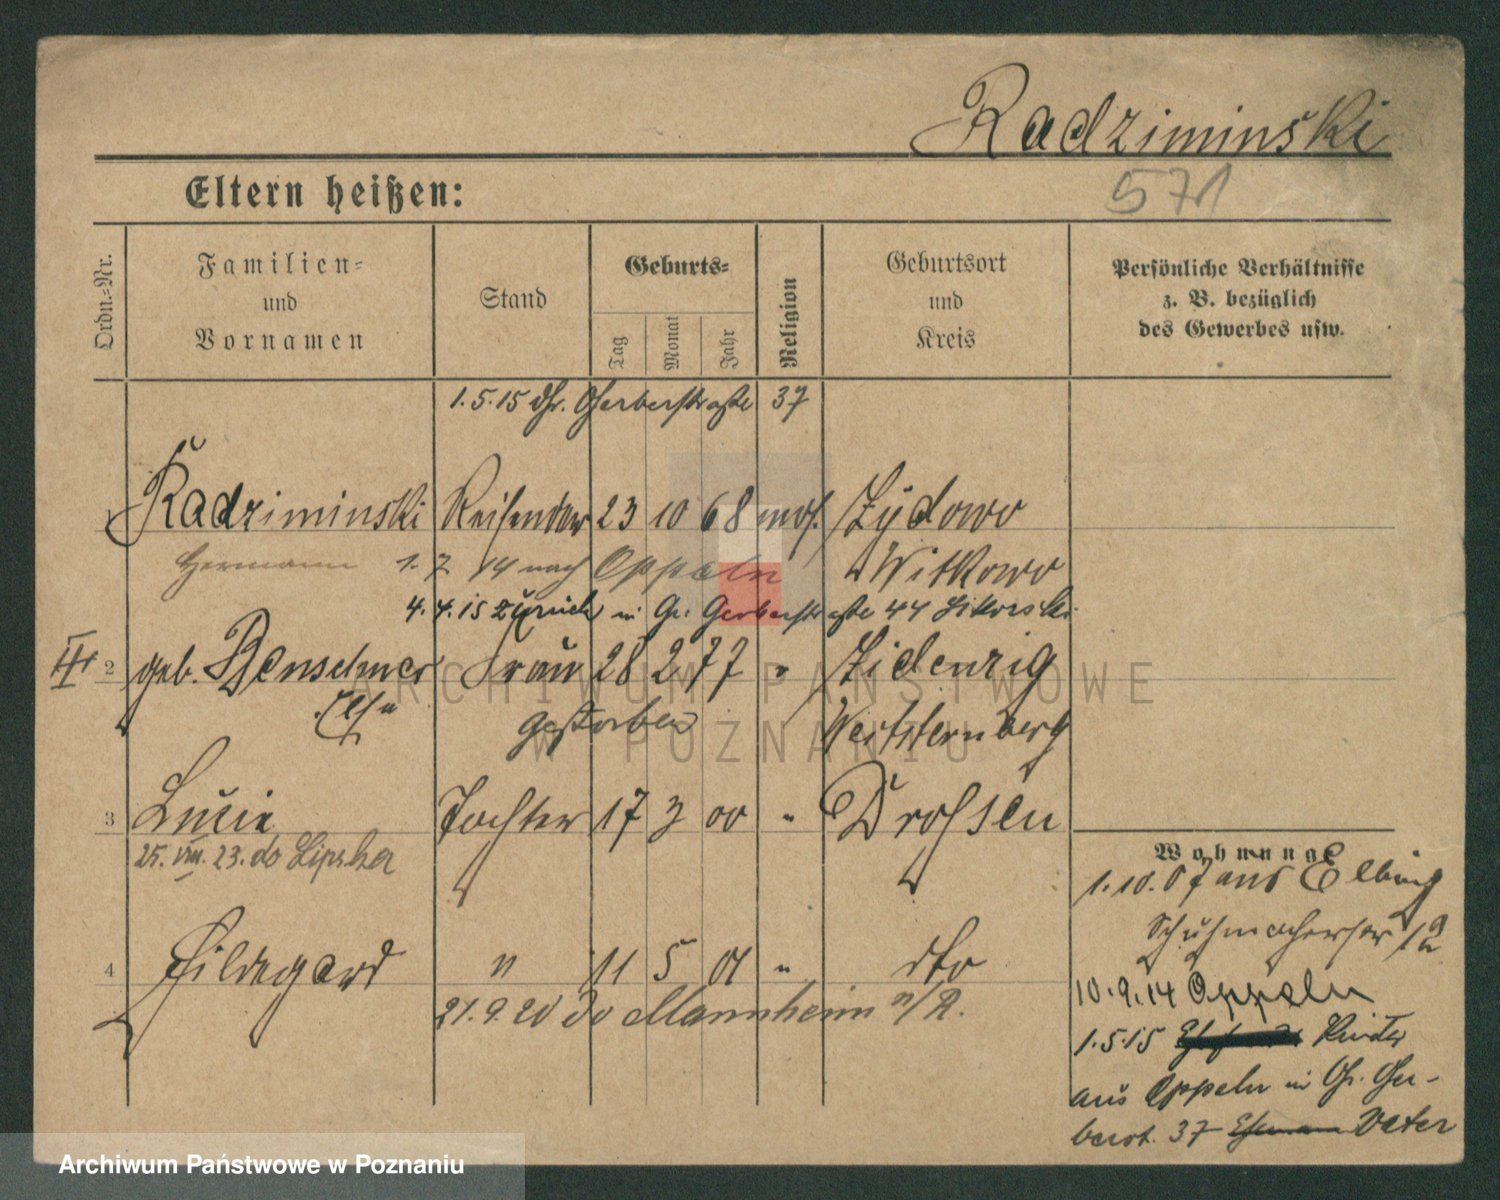 Radziminski
571
Eltern heißen:
Ordn.=Nr.
Familien=
und
Vornamen
Stand
Geburts=
Tag
Monat
Jahr
Religion
Geburtsort
und
Kreis
Persönliche Verhältnisse
z. B. bezüglich
des Gewerbes usw.
1.5.15 Gerberstraße 37
1 Radziminski Reisender 23 10 68 mos. Zydowo
Hermann 1. 7. 14 nach Oppeln Witkowo
4.4.15 zurück in Gr. Gerberstraße 44 Sikorski
III 2 geb. Frau 28 2 77 " Zidenzig
Else gestorben Weststernberg
3 Lucie Tochter 17 3 00 " Drossen
25. VIII. 23. do
4 Hildegard " 11 5 01 " dto
21.9.20 do Mannheim a/R.
Wohnung:
1.10.07 aus Elbing
Schuhmacherstr 12
10.9.14 Oppeln
1.5.15 Kinder
aus Oppeln in Gr. Ger-
berst. 37 Ehemann Vater
ARCHIWUM PAŃSTWOWE
W POZNANIU
Archiwum Państwowe w Poznaniu